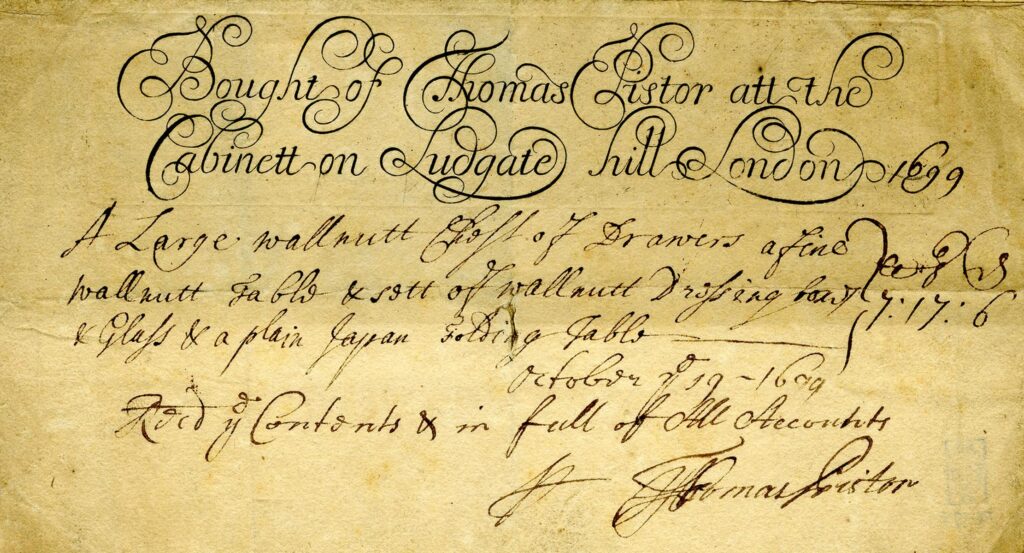 Bought of Thomas Pistor att the
Cabinett on Ludgate hill London 1699
A Large wallnutt Chest of Drawers a fine
wallnutt Table & sett of wallnutt Dressing boxes 7:17:6
& Glass & a plain Japan Folding Table
October ye 19 - 1699
Recd ye Contents & in full of All Accounts
Thomas Pistor